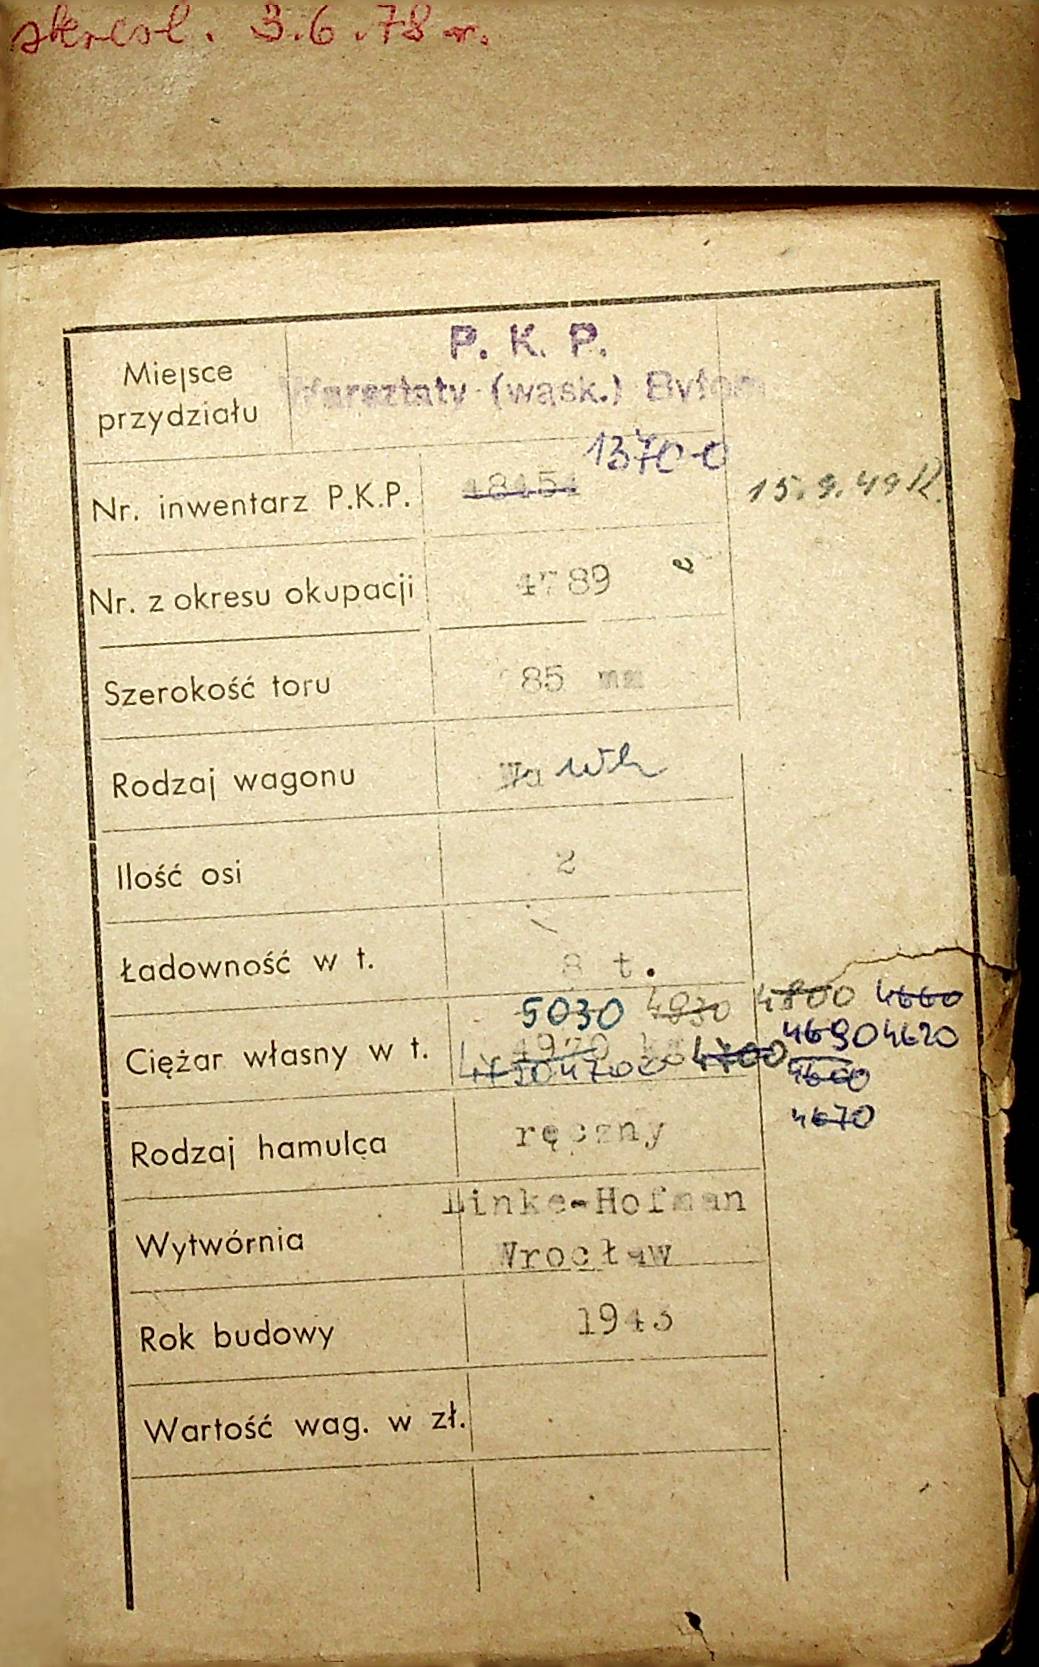 skreśl. 3.6.78 r.
P. K. P.
Miejsce przydziału Warsztaty (wąsk.) Bytom
13700
Nr. inwentarz P.K.P. 18454 15.9.49 R.
Nr. z okresu okupacji 4789
Szerokość toru 85 mm
Rodzaj wagonu Wa Wh
Ilość osi 2
Ładowność w t. 8 t.
5030 4930 4800 4660
Ciężar własny w t. 4970 kg 4700 4690 4620
4660
4670
Rodzaj hamulca ręczny
Wytwórnia Linke-Hofman
Wrocław
Rok budowy 1943
Wartość wag. w zł.